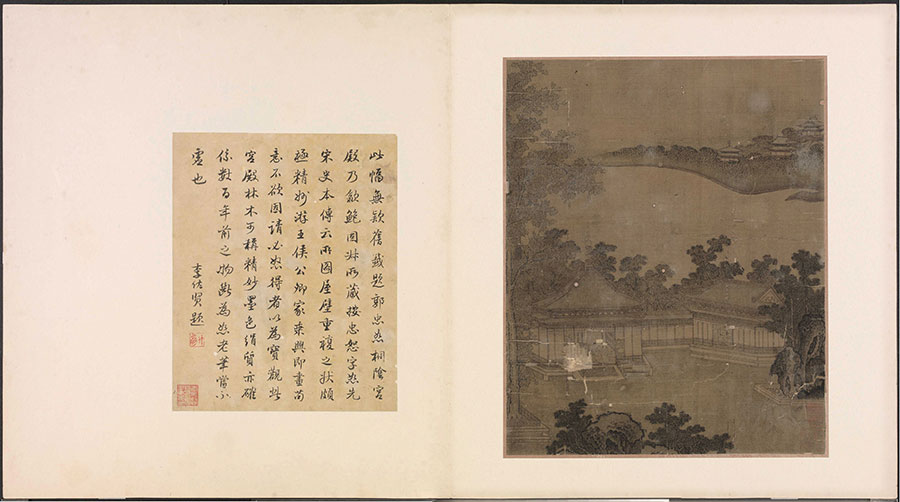 此幅無款舊籤題郭忠恕桐陰宮
殿乃歙鮑所藏按忠恕字恕先
宋史本傳云所圖屋壁重複之狀頗
極精妙游王侯公卿家乘興即畫苟
意不欲固請必怒得者以為寶觀此
宮殿林木可稱精妙墨色絹質亦確
係數百年前之物斷為恕老筆當不
虛也
李佐賢題